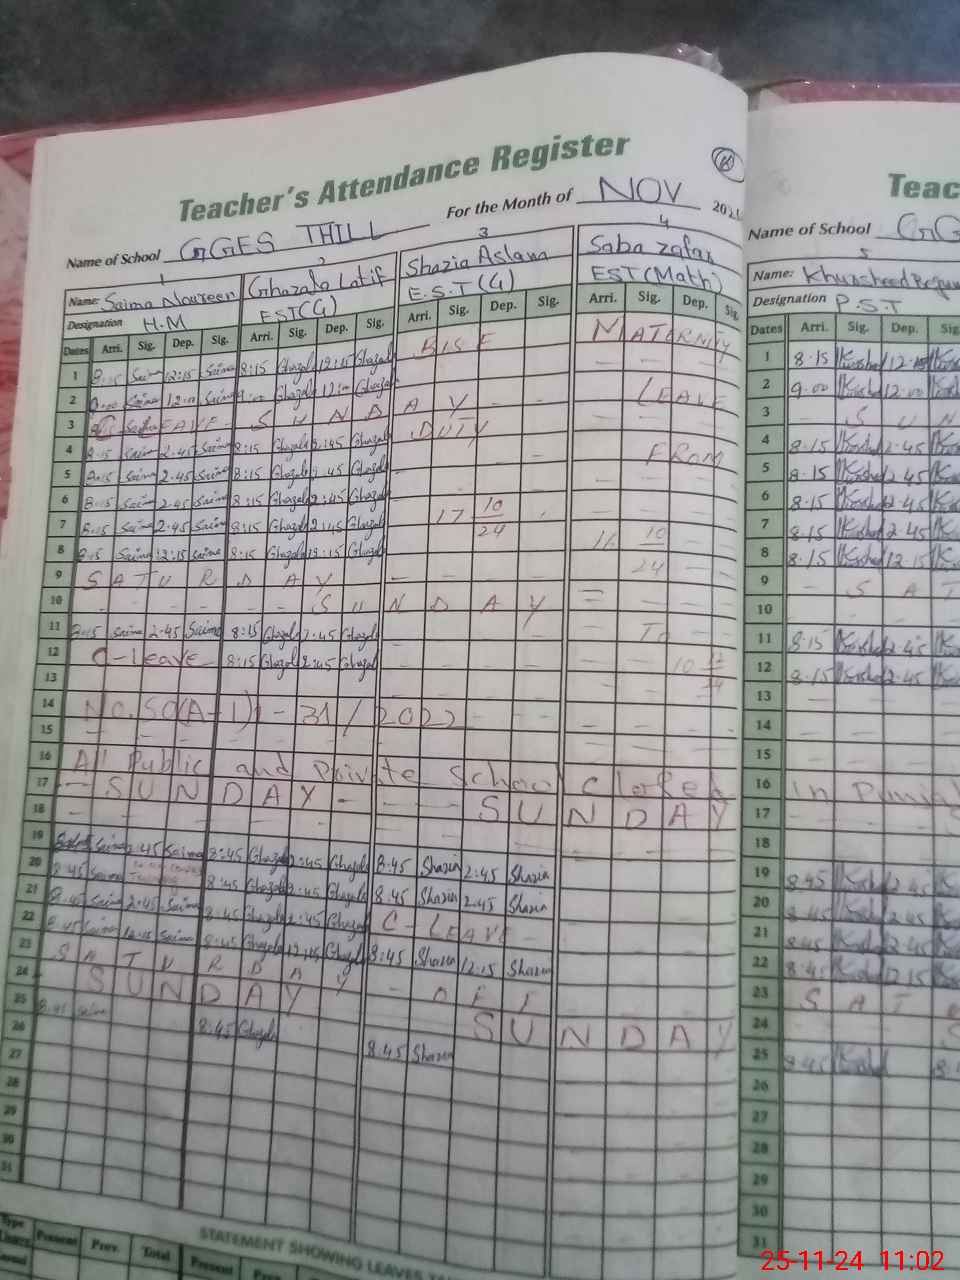 Teacher's Attendance Register
Name of School GGES THILL For the Month of NOV 202
1 2 3 4
Name: Saima Noureen Ghazala Latif Shazia Aslam Saba Zafar
Designation H.M EST(G) E.S.T(G) EST(Math)
Dates Arri. Sig. Dep. Sig. Arri. Sig. Dep. Sig. Arri. Sig. Dep. Sig. Arri. Sig. Dep. Sig.
1 8:15 Saima 12:15 Saima 8:15 Ghazala 12:15 Ghazala BISE MATERNITY
2 9:00 Saima 12:00 Saima 9:00 Ghazala 12:00 Ghazala LEAVE
3 SUNDAY
4 8:15 Saima 2:45 Saima 8:15 Ghazala 2:45 Ghazala DUTY
5 8:15 Saima 2:45 Saima 8:15 Ghazala 2:45 Ghazala FROM
6 8:15 Saima 2:45 Saima 8:15 Ghazala 2:45 Ghazala
7 8:15 Saima 2:45 Saima 8:15 Ghazala 2:45 Ghazala 17 10/24
8 8:15 Saima 12:15 Saima 8:15 Ghazala 12:15 Ghazala 10/24
9 SATURDAY
10 SUNDAY
11 8:15 Saima 2:45 Saima 8:15 Ghazala 2:45 Ghazala To
12 C-Leave 8:15 Ghazala 2:45 Ghazala
13
14 No. SO(A-1)1-31/2022
15
16 All Public and Private School Closed
17 SUNDAY SUNDAY
18
19 Saima 2:45 Saima 8:45 Ghazala 2:45 Ghazala 8:45 Shazia 2:45 Shazia
20 8:45 Saima Training 8:45 Ghazala 2:45 Ghazala 8:45 Shazia 2:45 Shazia
21 8:45 Saima 2:45 Saima 8:45 Ghazala 2:45 Ghazala C-LEAVE
22 8:45 Saima 12:15 Saima 8:45 Ghazala 12:15 Ghazala 8:45 Shazia 12:15 Shazia
23 SATURDAY OFF
24 SUNDAY SUNDAY
25 8:45 Saima 8:45 Ghazala 8:45 Shazia
26
27
28
29
30
31
Type Present Prev. Total Present Prev.
STATEMENT SHOWING LEAVES
Teac
Name of School GG
5
Name: Khursheed Begum
Designation P.S.T
Dates Arri. Sig. Dep. Sig
1 8:15 12:15
2 9:00 12:00
3 SUN
4 8:15 2:45
5 8:15 2:45
6 8:15 2:45
7 8:15 2:45
8 8:15 12:15
9 SAT
10
11 8:15 2:45
12 8:15 2:45
13
14
15
16 in Punjab
17
18
19 8:45 2:45
20 8:45 2:45
21 8:45 2:45
22 8:45 12:15
23 SAT
24 S
25 8:45
26
27
28
29
30
31
25-11-24 11:02